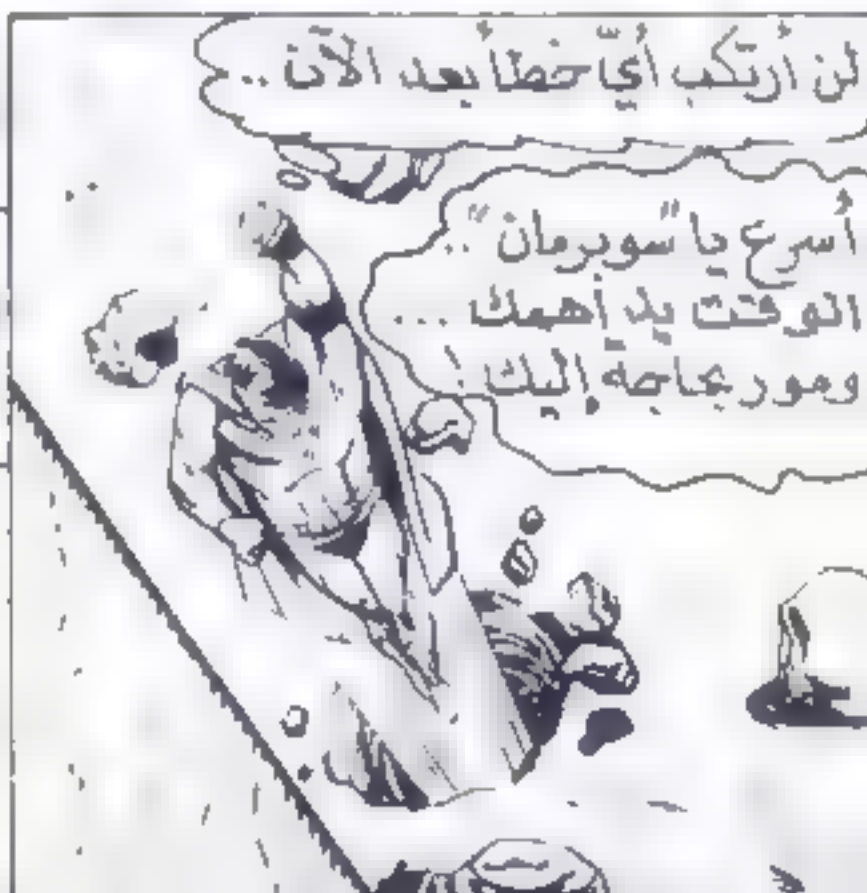 لن أرتكب أيّ خطأ بعد الآن ..
أسرع يا "سوبرمان" ..
الوقت يداهمك ...
ومور بحاجة إليك !